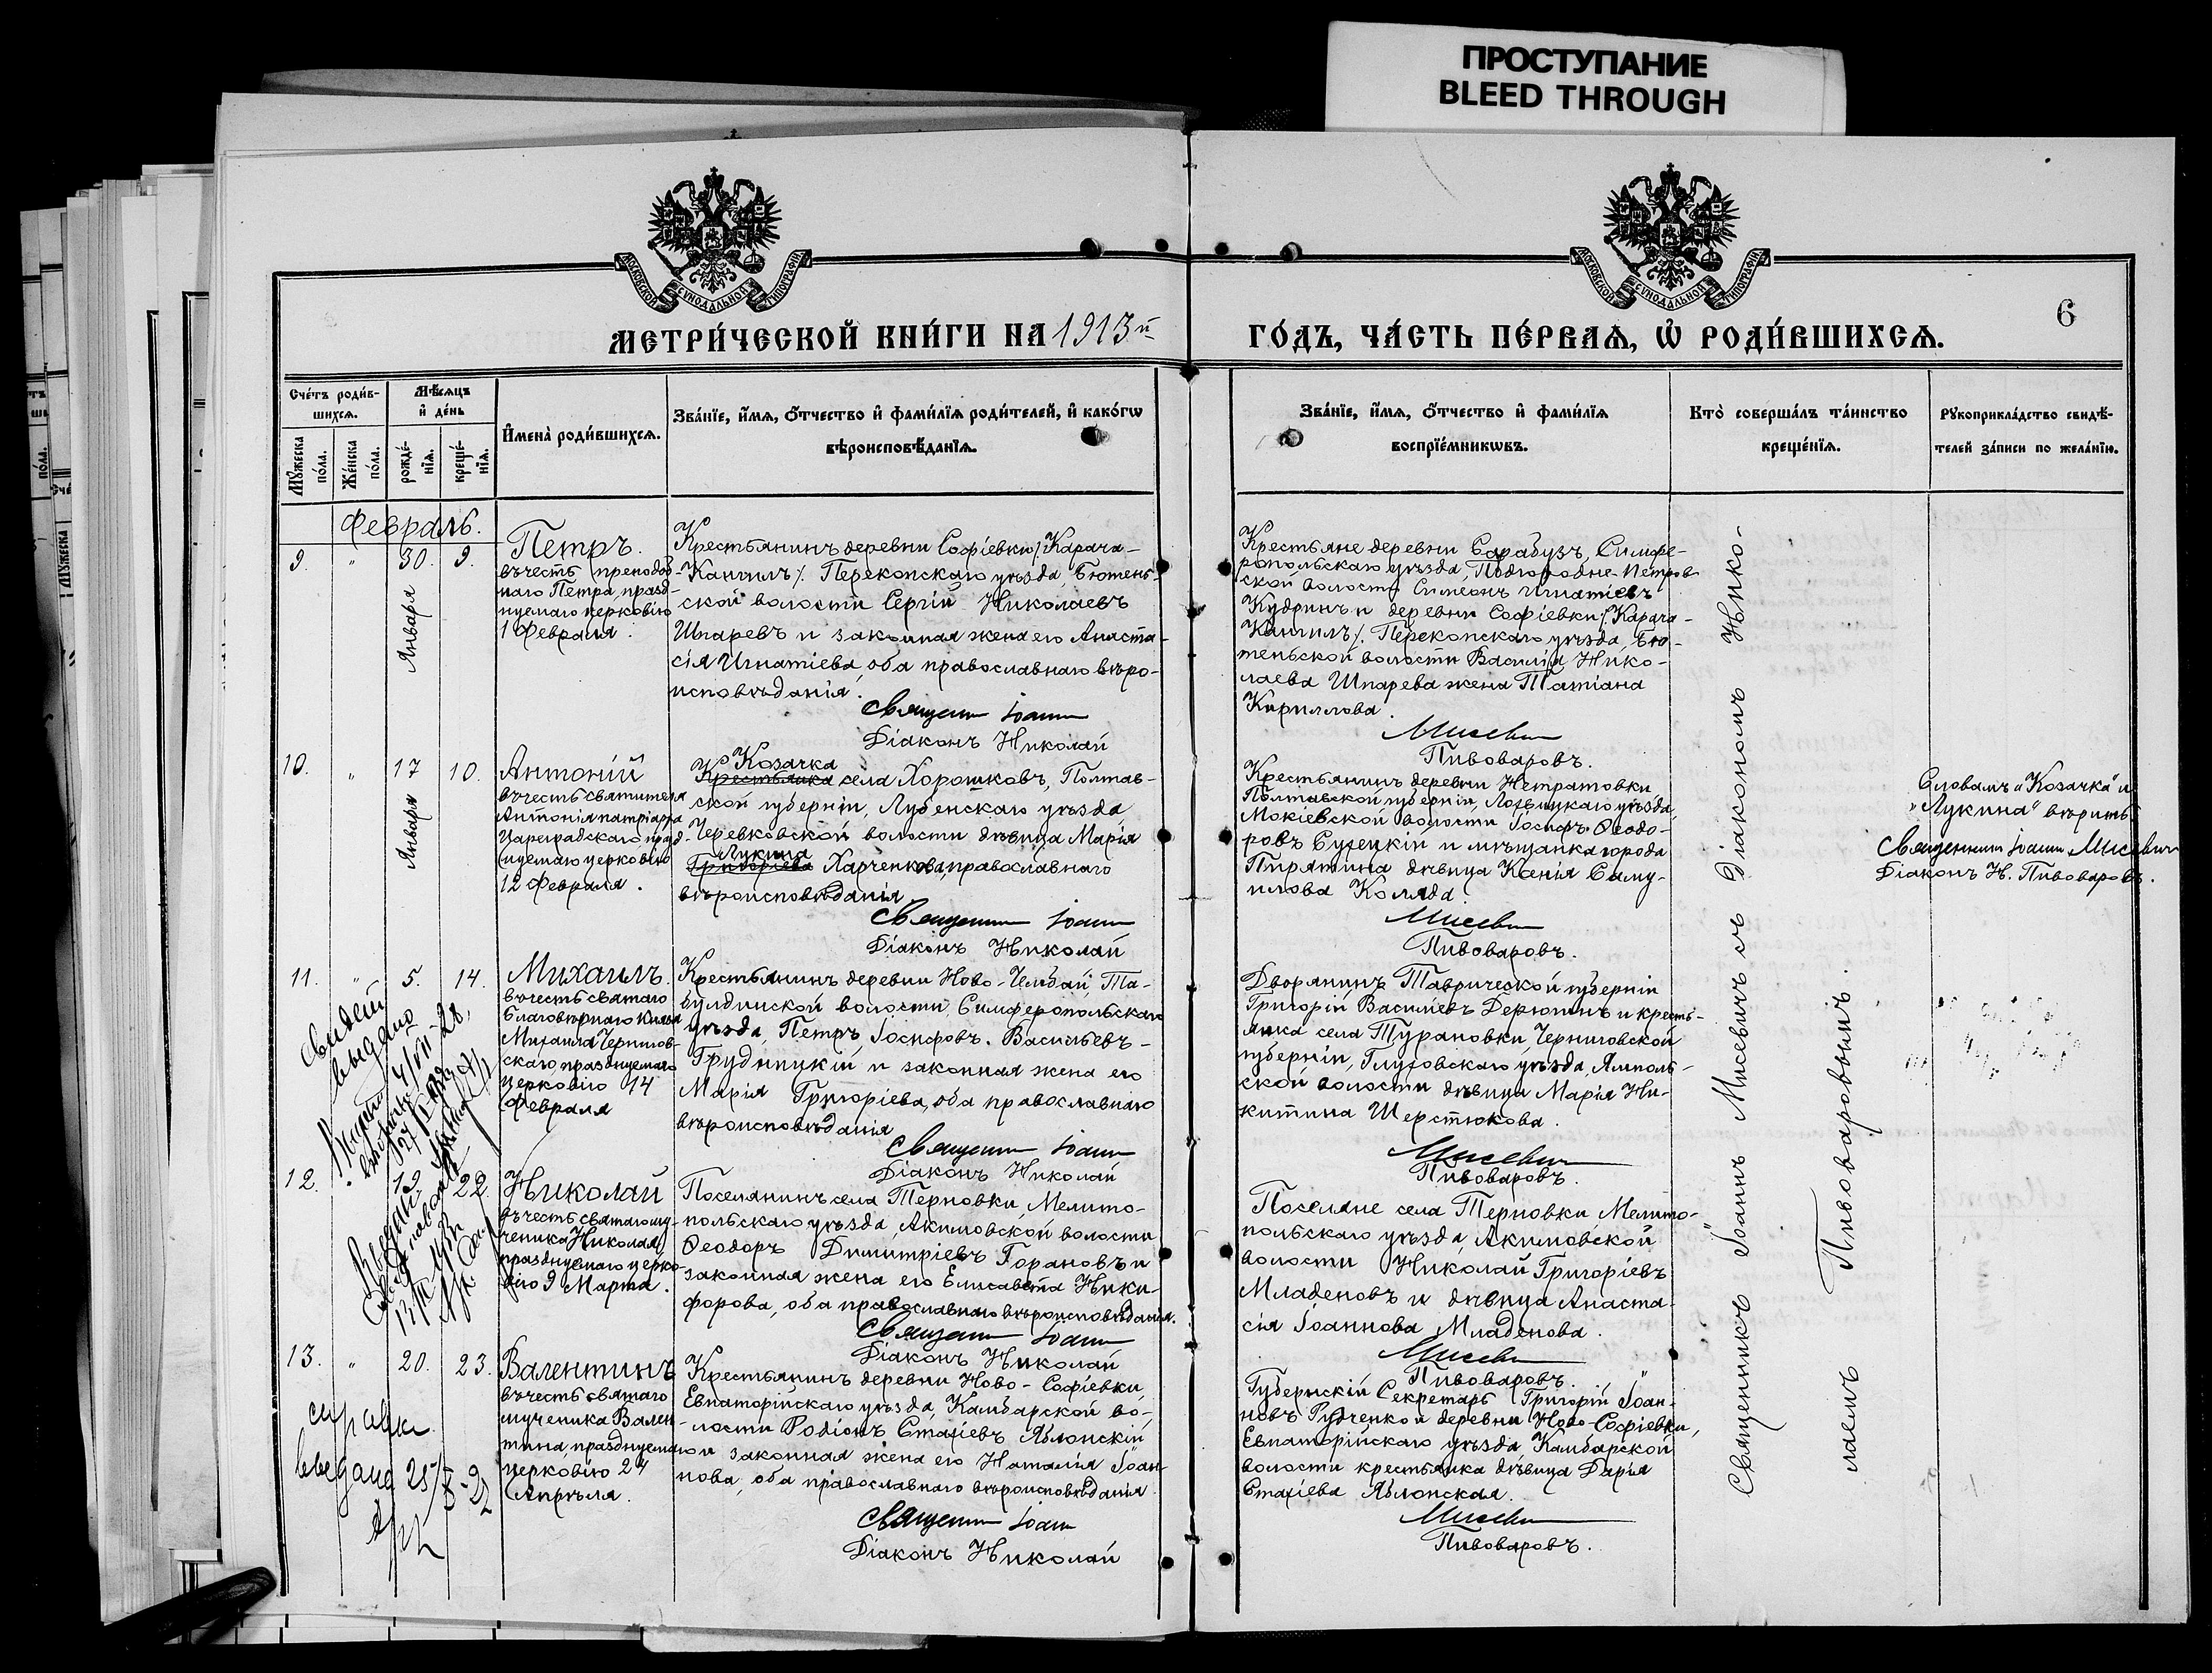 ПРОСТУПАНИЕ
BLEED THROUGH
МОСКОВСКОЙ СѴНОДАЛЬНОЙ ТИПОГРАФІИ
МОСКОВСКОЙ СѴНОДАЛЬНОЙ ТИПОГРАФІИ
6
МЕТРИ́ЧЕСКОЙ КНИ́ГИ НА 1913й
ГО́ДЪ, ЧА́СТЬ ПЕ́РВАѦ, Ѡ҆ РОДИ́ВШИХСѦ.
Сче́тъ роди́в-
шихсѧ.
Мѣ́сѧцъ
и҆ де́нь
Мꙋ́жеска
по́ла.
Же́нска
по́ла.
рожде́-
нїѧ.
креще́-
нїѧ.
И҆мена̀ роди́вшихсѧ.
Зва́нїе, и҆́мѧ, ѻ҆́тчество и҆ фами́лїѧ роди́телей, и҆ како́гѡ
вѣроисповѣ́данїѧ.
Зва́нїе, и҆́мѧ, ѻ҆́тчество и҆ фами́лїѧ
воспрїе́мникѡвъ.
Кто̀ соверша́лъ та́инство
креще́нїѧ.
Рꙋкоприкла́дство свидѣ́-
телей за́писи по жела́нїю.
Февраль.
9. " 30. 9.
Января
Петръ.
въ честь преподоб-
наго Петра, празд-
нуемаго церковію
1 Февраля.
Крестьянинъ деревни Софіевки /Карача-
-Кангилъ/. Перекопскаго уѣзда, Бютень-
ской волости Сергій Николаевъ
Шпаревъ и законная жена его Анаста-
сія Игнатіева, оба православнаго вѣро-
исповѣданія.
Священн Іоанн
Діаконъ Николай
Крестьяне деревни Сарабузъ, Симфе-
ропольскаго уѣзда, Подгородне-Петров
ской волости Симеонъ Игнатіевъ
Кудринъ и деревни Софіевки /Карача-
Кангилъ/. Перекопскаго уѣзда, Бю-
теньской волости Василія Нико-
лаева Шпарева жена Татіана
Кириллова.
Мисевич
Пивоваровъ.
10. " 17 10.
Января
Антоній
въ честь святителя
Антонія патріарха
Цареградскаго празд-
нуемаго церковію
12 Февраля.
Козачка
Крестьянка села Хорошковъ, Полтав-
ской губерніи, Лубенскаго уѣзда,
Черевковской волости дѣвица Марія
Лукина
Григоріева Харченкова, православнаго
вѣроисповѣданія
Священн Іоанн
Діаконъ Николай
Крестьянинъ деревни Нетратовки
Полтавской губерніи, Лохвицкаго уѣзда,
Мокіевской волости Іосифъ Ѳеодо-
ровъ Сулецкій и мѣщанка города
Пирятина дѣвица Ксенія Саму-
илова Коляда.
Мисевич
Пивоваровъ.
Словамъ „Козачка" и
„Лукина" вѣрить.
Священникъ Іоанн Мисевич
Діаконъ Н. Пивоваровъ.
11. " 5. 14.
Михаилъ.
въ честь святаго
Благовѣрнаго Князя
Михаила Чернигов-
скаго, празднуемаго
церковію 14
Февраля
Крестьянинъ деревни Ново-Челбай, Та-
булдинской волости, Симферопольскаго
уѣзда, Петръ Іосифовъ. Васильевъ-
Грудницкій и законная жена его
Марія Григоріева, оба православнаго
вѣроисповѣданія
Священн Іоанн
Діаконъ Николай
Дворянинъ Таврической губерніи
Григорій Василіевъ Дерюгинъ и кресть-
янка села Турановки, Черниговской
губерніи, Глуховскаго уѣзда, Ямполь-
ской волости дѣвица Марія Ни-
китина Шерстюкова.
Мисевич
Пивоваровъ.
12. 19 22.
Николай
въ честь святаго му-
ченика Николая,
празднуемаго церко-
вію 9 Марта.
Поселянинъ села Терновки, Мелито-
польскаго уѣзда, Акимовской волости
Ѳеодоръ Димитріевъ Горановъ и
законная жена его Елисавета Ники-
форова, оба православнаго вѣроисповѣданія.
Священн Іоанн
Діаконъ Николай
Поселяне села Терновки, Мелито-
польскаго уѣзда, Акимовской
волости Николай Григоріевъ
Младеновъ и дѣвица Анаста-
сія Іоаннова Младенова.
Мисевич
Пивоваровъ.
13. " 20. 23.
Валентинъ
въ честь святаго
мученика Вален-
тина, празднуема-
го церковію 24
Апрѣля.
Крестьянинъ деревни Ново-Софіевки,
Евпаторійскаго уѣзда, Камбарской во-
лости Родіонъ Стахіевъ Яблонскій
и законная жена его Наталія Іоан-
нова, оба православнаго вѣроисповѣданія.
Священн Іоанн
Діаконъ Николай
Губернскій Секретарь Григорій Іоан-
новъ Рудченко и деревни Ново-Софіевки,
Евпаторійскаго уѣзда Камбарской
волости крестьянка дѣвица Дарія
Стахіева Яблонская.
Мисевич
Пивоваровъ.
Священникъ Іоаннъ Мисевичъ съ діакономъ Нико-
лаемъ Пивоваровымъ.
выдано
справка
выдана 25/X-2